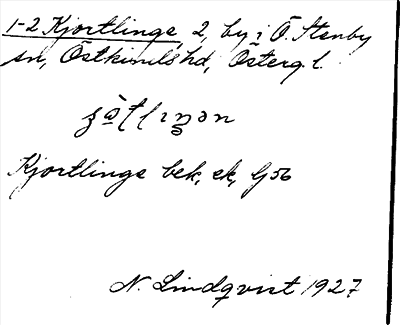 1-2 Kjortlinge, 2, by i Ö. Stenby
sn, Östkinds hd, Österg. l.
Kjortlinge bek, ek, G 56
N. Lindqvist 1927